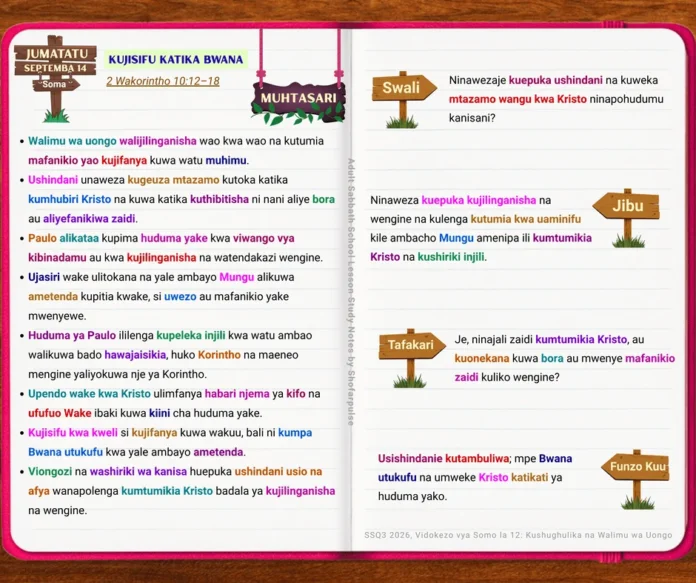 JUMATATU
SEPTEMBA 14
Soma
KUJISIFU KATIKA BWANA
2 Wakorintho 10:12–18
MUHTASARI
• Walimu wa uongo walijilinganisha wao kwa wao na kutumia
mafanikio yao kujifanya kuwa watu muhimu.
• Ushindani unaweza kugeuza mtazamo kutoka katika
kumhubiri Kristo na kuwa katika kuthibitisha ni nani aliye bora
au aliyefanikiwa zaidi.
• Paulo alikataa kupima huduma yake kwa viwango vya
kibinadamu au kwa kujilinganisha na watendakazi wengine.
• Ujasiri wake ulitokana na yale ambayo Mungu alikuwa
ametenda kupitia kwake, si uwezo au mafanikio yake
mwenyewe.
• Huduma ya Paulo ililenga kupeleka injili kwa watu ambao
walikuwa bado hawajaisikia, huko Korintho na maeneo
mengine yaliyokuwa nje ya Korintho.
• Upendo wake kwa Kristo ulimfanya habari njema ya kifo na
ufufuo Wake ibaki kuwa kiini cha huduma yake.
• Kujisifu kwa kweli si kujifanya kuwa wakuu, bali ni kumpa
Bwana utukufu kwa yale ambayo ametenda.
• Viongozi na washiriki wa kanisa huepuka ushindani usio na
afya wanapolenga kumtumikia Kristo badala ya kujilinganisha
na wengine.
Adult Sabbath School Lesson Study Notes by Shofarpulse
Swali
Ninawezaje kuepuka ushindani na kuweka
mtazamo wangu kwa Kristo ninapohudumu
kanisani?
Jibu
Ninaweza kuepuka kujilinganisha na
wengine na kulenga kutumia kwa uaminifu
kile ambacho Mungu amenipa ili kumtumikia
Kristo na kushiriki injili.
Tafakari
Je, ninajali zaidi kumtumikia Kristo, au
kuonekana kuwa bora au mwenye mafanikio
zaidi kuliko wengine?
Funzo Kuu
Usishindanie kutambuliwa; mpe Bwana
utukufu na umweke Kristo katikati ya
huduma yako.
SSQ3 2026, Vidokezo vya Somo la 12: Kushughulika na Walimu wa Uongo